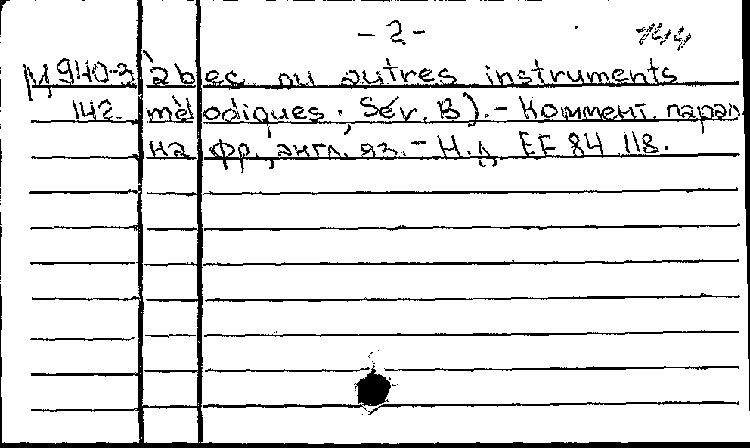 - 2 -
М 940-3 à bec ou autres instruments
142 mélodiques; Sér. B). - Коммент. парал.
на фр., англ. яз. - Н.д. EF 84 118.